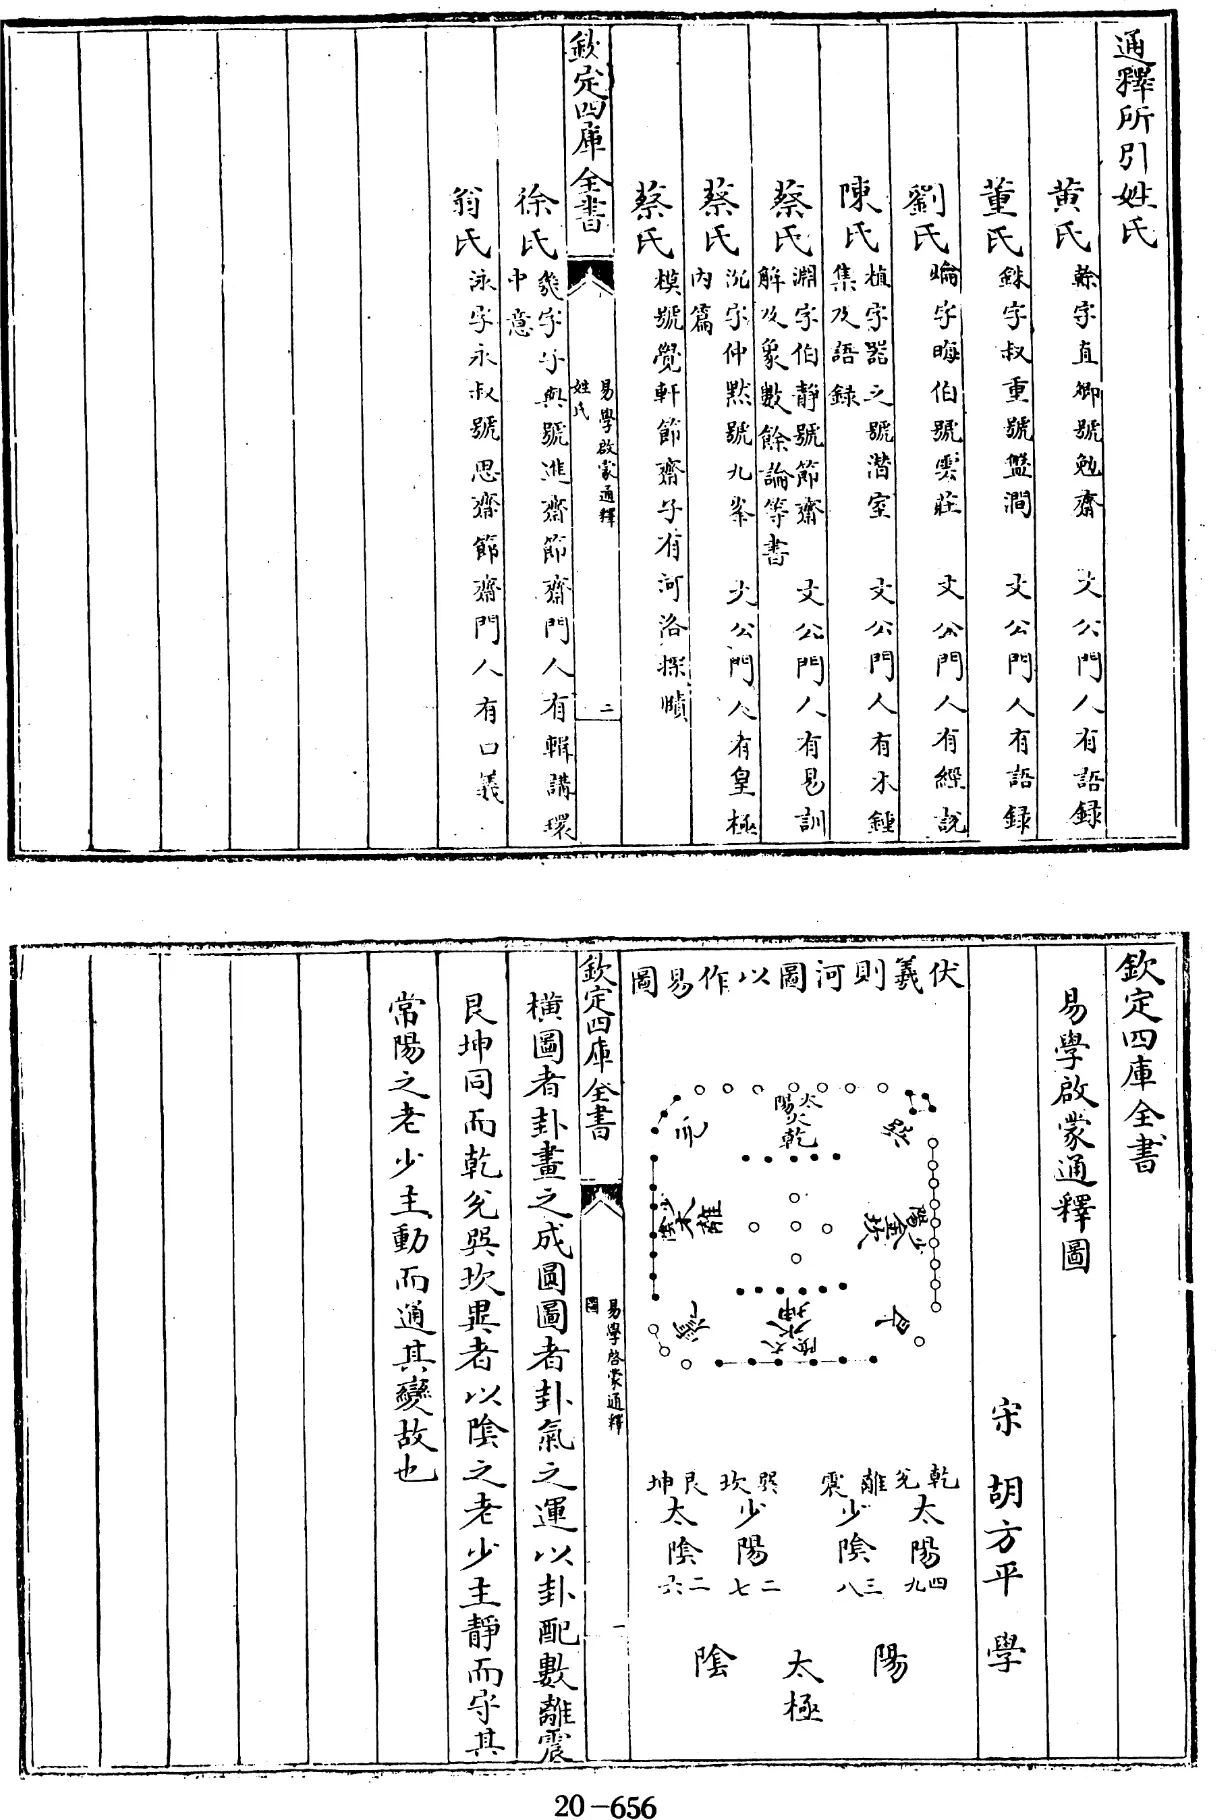 通釋所引姓氏
黄氏 榦字直卿號勉齋 文公門人有語録
董氏 銖字叔重號盤澗 文公門人有語録
劉氏 爚字晦伯號雲莊 文公門人有經説
陳氏 植字器之號潜室 文公門人有木鍾
集及語録
蔡氏 淵字伯靜號節齋 文公門人有易訓
解及象數餘論等書
蔡氏 沉字仲黙號九峯 文公門人有皇極
内篇
蔡氏 模號覺軒節齋子有河洛探賾
欽定四庫全書
易學啟蒙通釋
姓氏
二
徐氏 幾字子與號進齋節齋門人有輯講環
中意
翁氏 泳字永叔號思齋節齋門人有口義
欽定四庫全書
易學啟蒙通釋圖
宋 胡方平 學
伏羲則河圖以作易圖
太陽
火
乾
兌
巽
離
木
少陰
少陽
金
坎
震
艮
坤
水
太陰
乾兌
太陽
四九
離震
少陰
三八
巽坎
少陽
二七
艮坤
太陰
二六
陽
太極
陰
欽定四庫全書
易學啓蒙通釋
圖
一
橫圖者卦畫之成圓圖者卦氣之運以卦配數離震
艮坤同而乾兌巽坎異者以陰之老少主靜而守其
常陽之老少主動而通其變故也
20-656